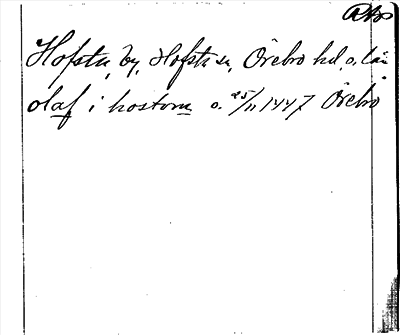 Rbr
Hofsta, by, Hofsta sn, Örebro hd. o. län
olaf i hostom o. 25/11 1447 Örebro